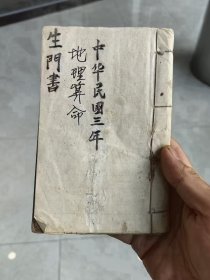 生門書
中华民國三年
地理算命